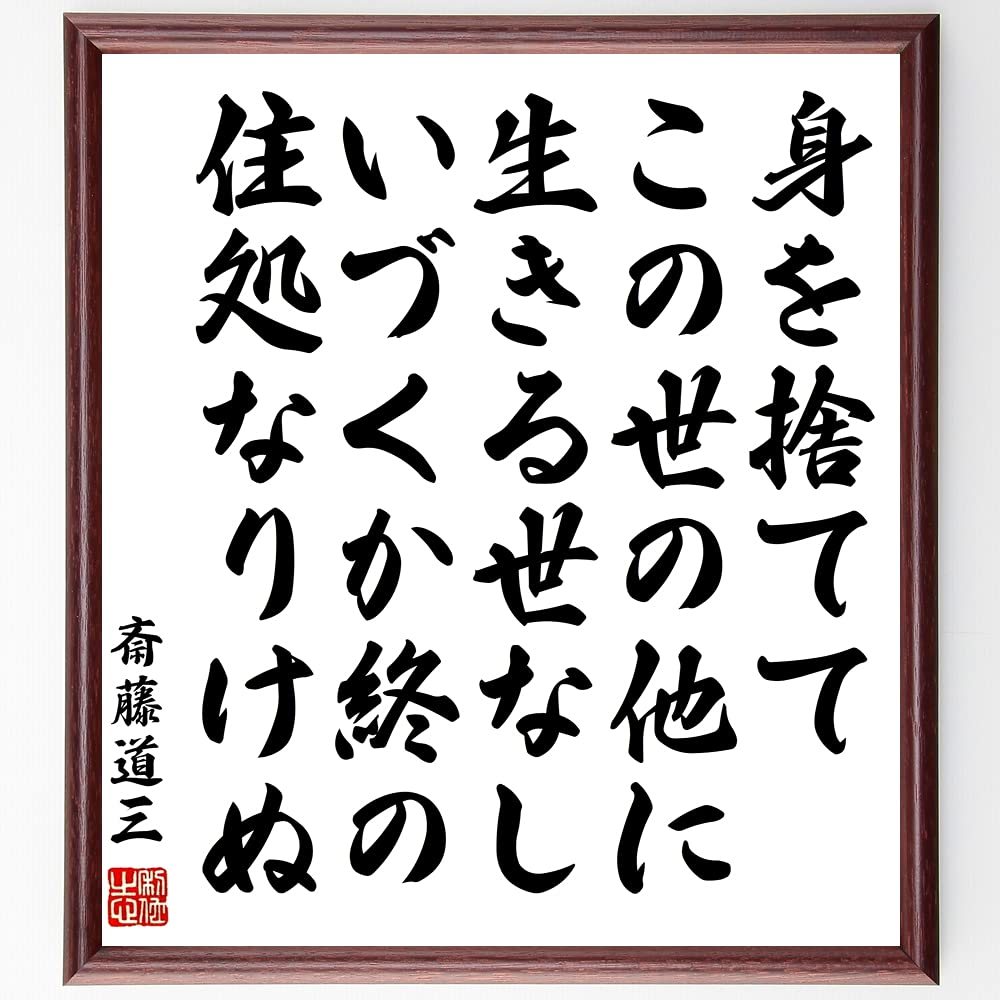 身を捨てて
この世の他に
生きる世なし
いづくか終の
住処なりけぬ
斎藤道三